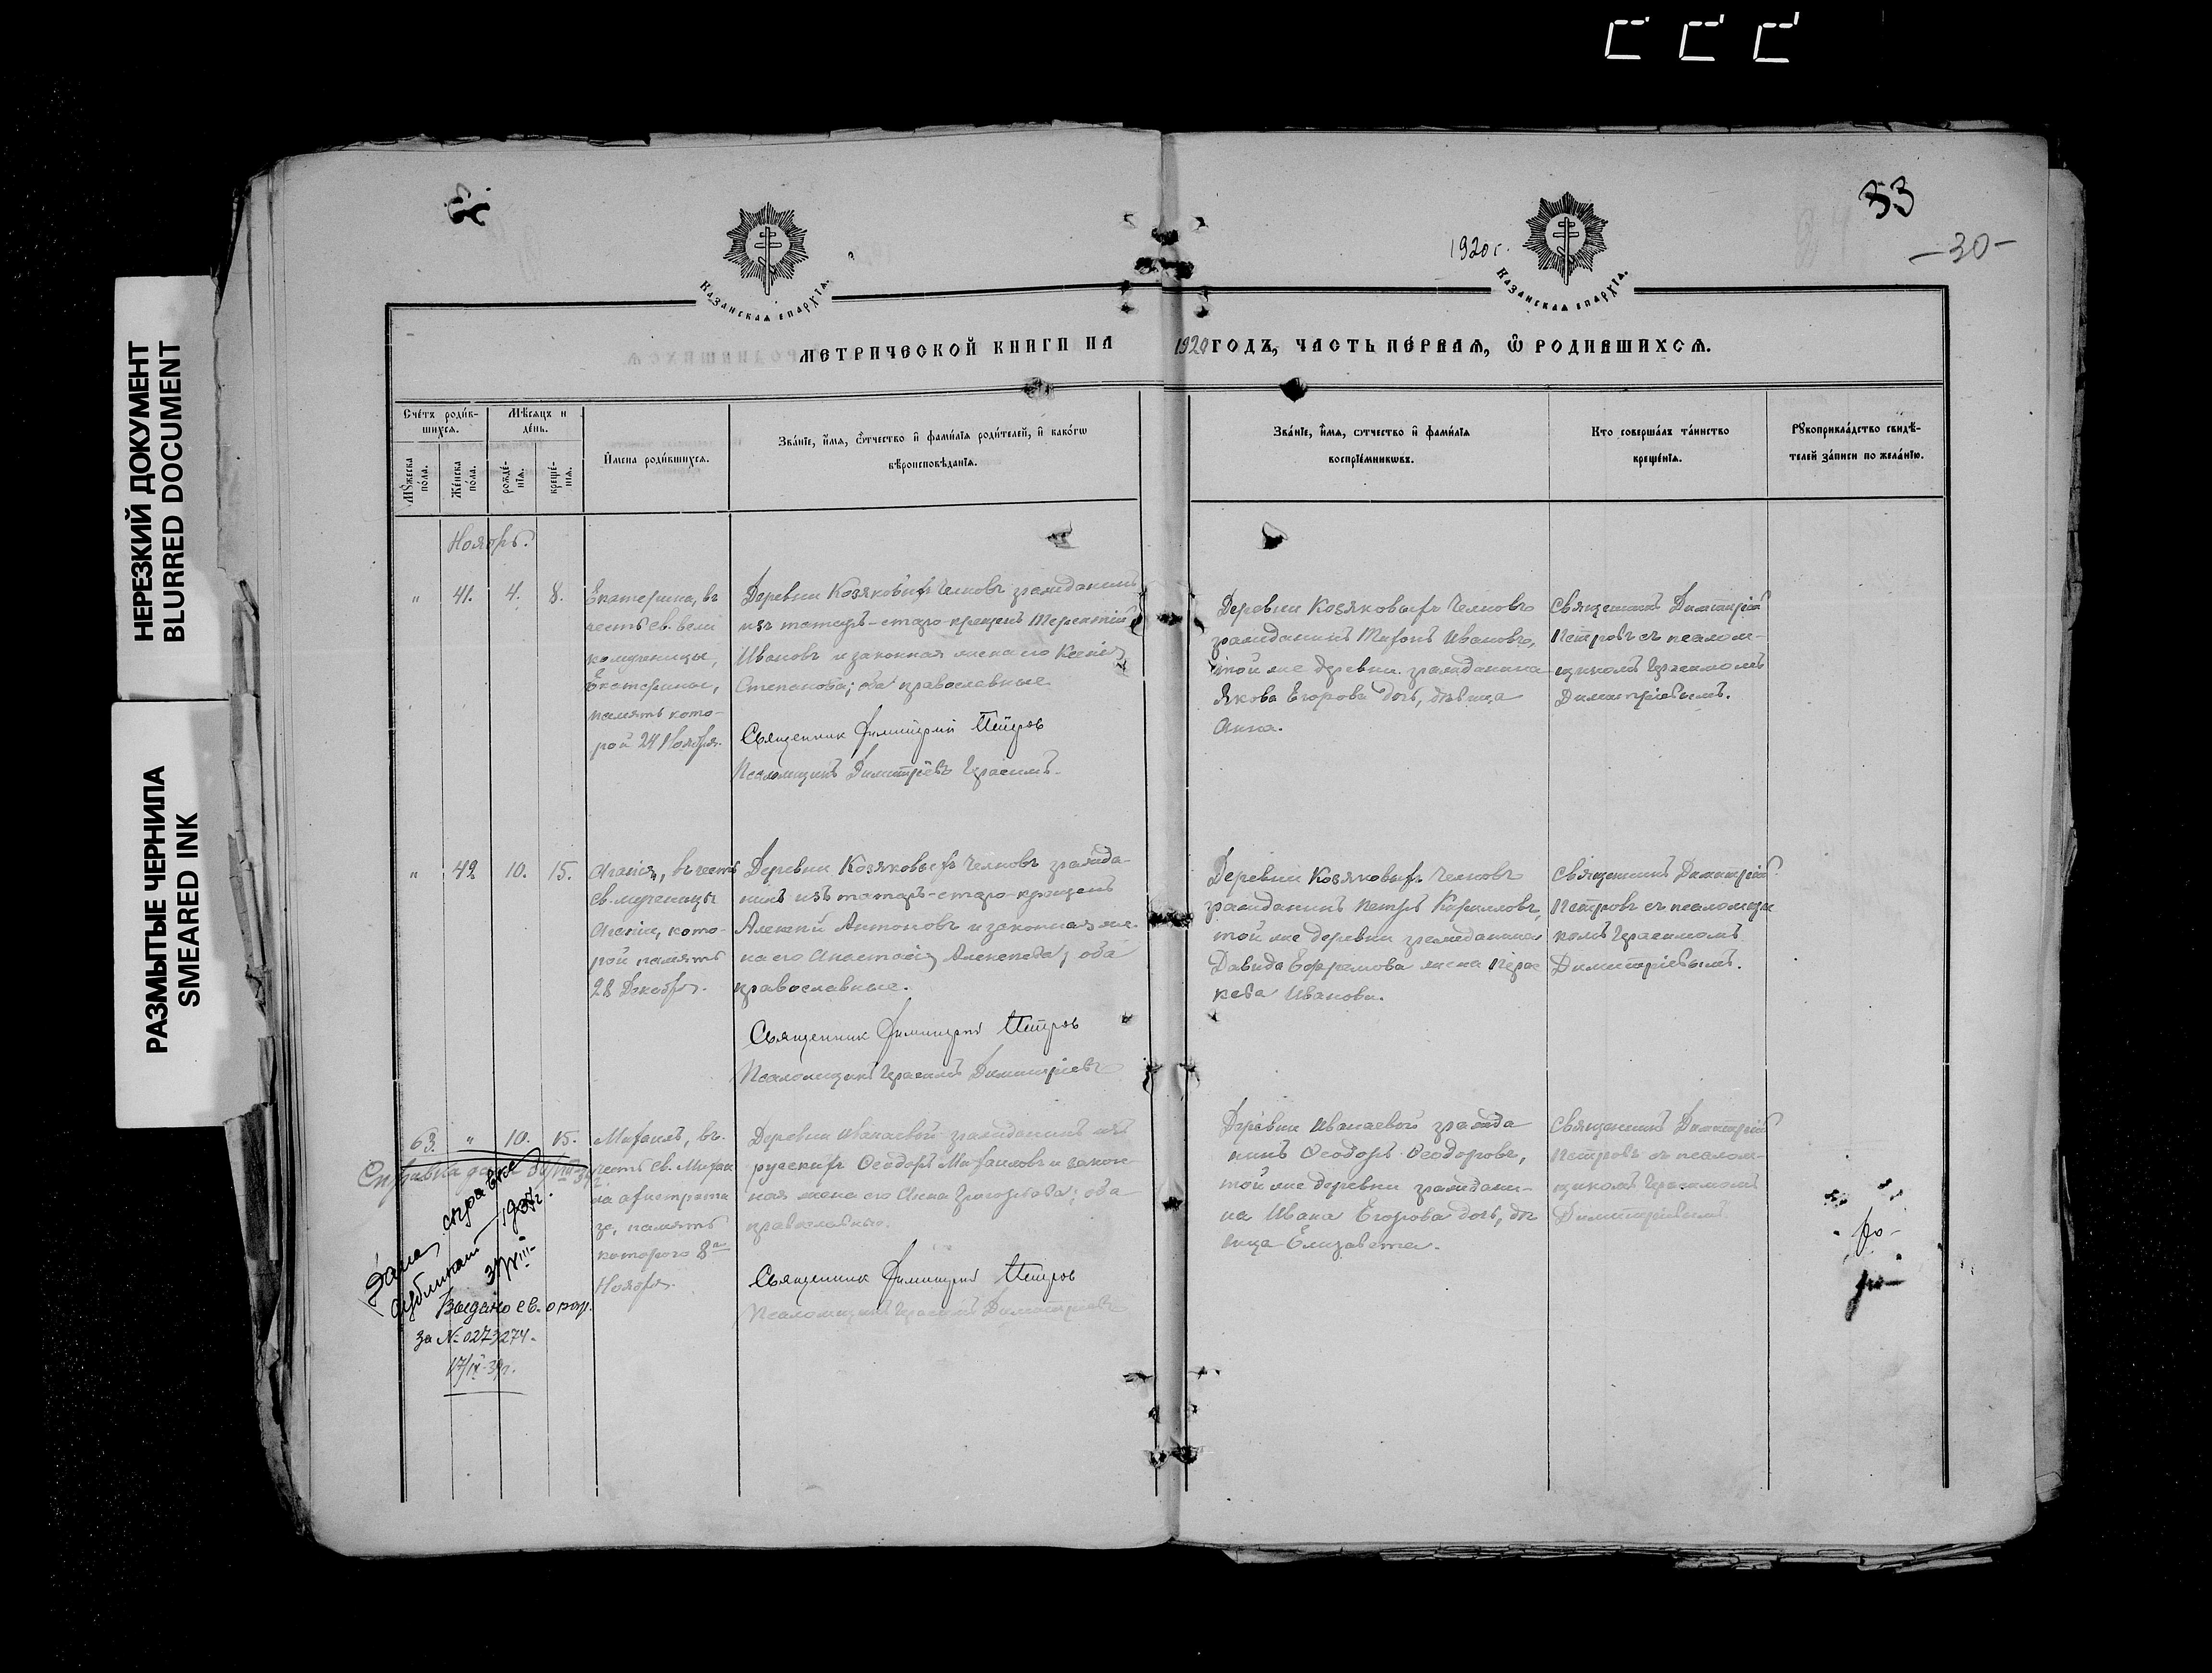 НЕРЕЗКИЙ ДОКУМЕНТ
BLURRED DOCUMENT
РАЗМЫТЫЕ ЧЕРНИЛА
SMEARED INK
33
—30—
1920 г.
Казанская епархїѧ.
Казанская епархїѧ.
МЕТРИЧЕСКОЙ КНИГИ НА 1920 ГОДЪ, ЧАСТЬ ПЕ́РВАѦ, Ѽ РОДИВШИХСѦ.
Сче́тъ роди́вшихсѧ.
Мꙋ́жеска по́ла.
Же́нска по́ла.
Мѣ́сѧцъ и де́нь.
рожде́нїѧ.
креще́нїѧ.
И҆мена роди́вшихсѧ.
Зва́нїе, и҆́мѧ, ѻ҆́тчество и҆ фами́лїѧ роди́телей, и҆ како́гѡ
вѣроисповѣ́данїѧ.
Зва́нїе, и҆́мѧ, ѻ҆тчество и҆ фами́лїѧ
воспрїе́мникѡвъ.
Кто соверша́лъ та́инство
креще́нїѧ.
Рꙋкоприкла́дство свидѣ́-
телей за́писи по жела́нїю.
Ноябрь.
" 41. 4. 8.
Екатерина, въ
честь св. вели
комученицы,
Екатерины,
память кото-
рой 24 Ноября.
Деревни Козяковыхъ Челновъ гражданинъ
изъ татаръ-старо-крещенъ Терентій
Ивановъ и законная жена его Ксенія
Степанова; оба православные
Священник Димитрий Петров
Псаломщикъ Димитріевъ Герасимъ.
Деревни Козяковыхъ Челновъ
гражданинъ Тихонъ Ивановъ,
той же деревни гражданина
Якова Егорова дочь, дѣвица
Анна.
Священникъ Димитрій
Петровъ съ псалом-
щикомъ Герасимомъ
Димитріевымъ.
" 42 10. 15.
Агапія, въ честь
св. мученицы
Агапіи, кото-
рой память
28 Декабря.
Деревни Козяковыхъ Челновъ гражда-
нинъ изъ татаръ-старо-крещенъ
Алексѣй Антоновъ и законная же-
на его Анастасія Алексѣева; оба
православные.
Священник Димитрий Петров
Псаломщикъ Герасимъ Димитріевъ
Деревни Козяковыхъ Челновъ
гражданинъ Петръ Кирилловъ,
той же деревни гражданина
Давида Ефремова жена Парас
кева Иванова.
Священникъ Димитрій
Петровъ съ псаломщи
комъ Герасимомъ
Димитріевымъ.
63. " 10. 15.
Михаилъ, въ
честь св. Михаи
ла архистрати
га, память
котораго 8го
Ноября.
Деревни Иванаевой гражданинъ изъ
русскихъ Ѳеодоръ Михаиловъ и закон-
ная жена его Анна Григорьева; оба
православные.
Священник Димитрий Петров
Псаломщикъ Герасимъ Димитріевъ
Деревни Иванаевой гражда
нинъ Ѳеодоръ Ѳеодоровъ,
той же деревни граждани-
на Ивана Егорова дочь, дѣ
вица Елизавета.
Священникъ Димитрій
Петровъ съ псалом-
щикомъ Герасимомъ
Димитріевымъ
Справка
Дана справка
дубликат
Выдано св. о рожд.
за № 0273274.
17/IV-39г.